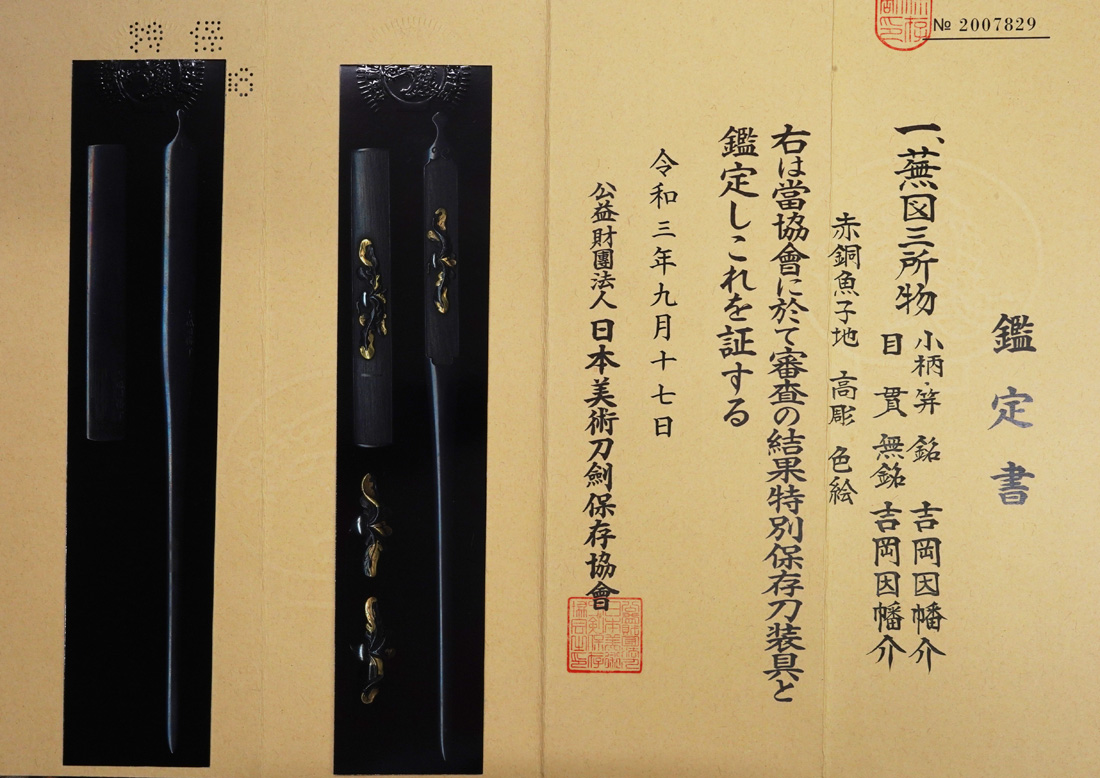 № 2007829
鑑定書
一、蕪図三所物
小柄・笄 銘 吉岡因幡介
目貫 無銘 吉岡因幡介
赤銅魚子地 高彫 色絵
右は當協會に於て審査の結果特別保存刀装具と
鑑定しこれを証する
令和三年九月十七日
公益財團法人 日本美術刀劍保存協會